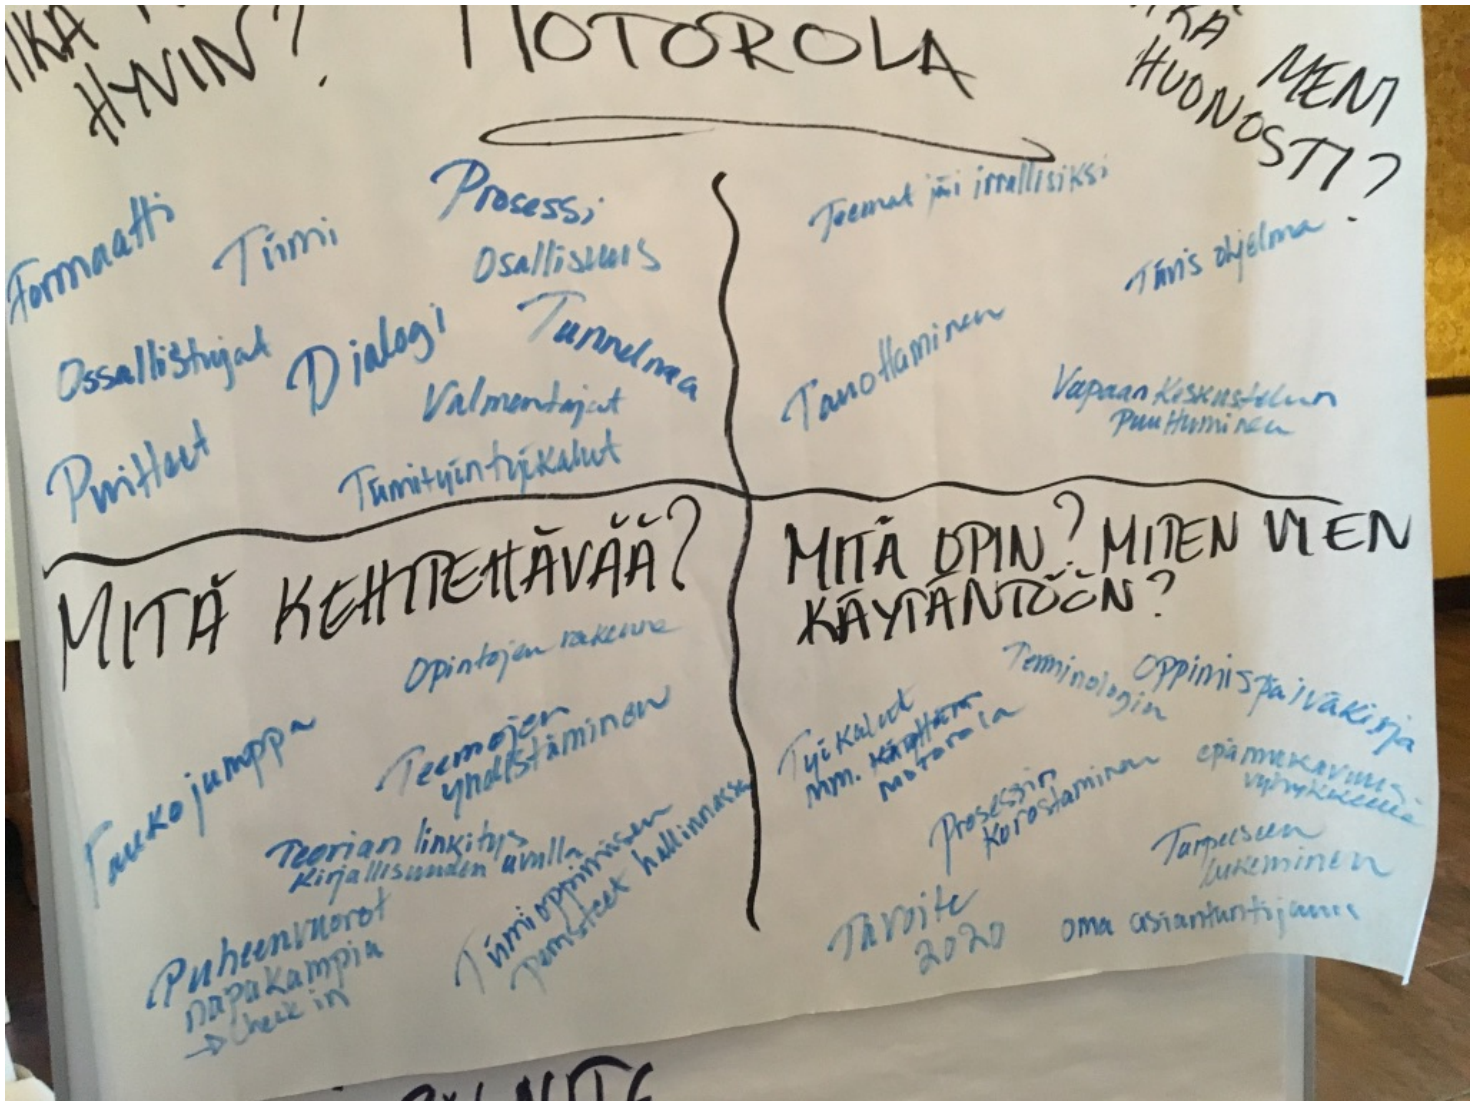 HYVIN?
MOTOROLA
MENI
HUONOSTI?
Formaatti
Tiimi
Prosessi
Osallisuus
Ossallistujat
Dialogi
Tunnelmaa
Valmentajat
Puitteet
Tiimityöntyökalut
Teemat jäi irrallisiksi
Tiivis ohjelma
Tauottaminen
Vapaan keskustelun
puuttuminen
MITÄ KEHITETTÄVÄÄ?
Opintojen rakenne
Taukojumppa
Teemojen
yhdistäminen
Teorian linkitys
kirjallisuuden avulla
Tiimioppimisen
perusteet hallinnassa
Puheenvuorot
napakampia
→ Check in
MITÄ OPIN? MITEN VIEN
KÄYTÄNTÖÖN?
Terminologin
Oppimispäiväkirja
Työkalut
mm. käyttöön
motorola
Prosessin
korostaminen
epämukavuus
Tarpeeseen
lukeminen
Tavoite
2020
oma asiantuntijuus